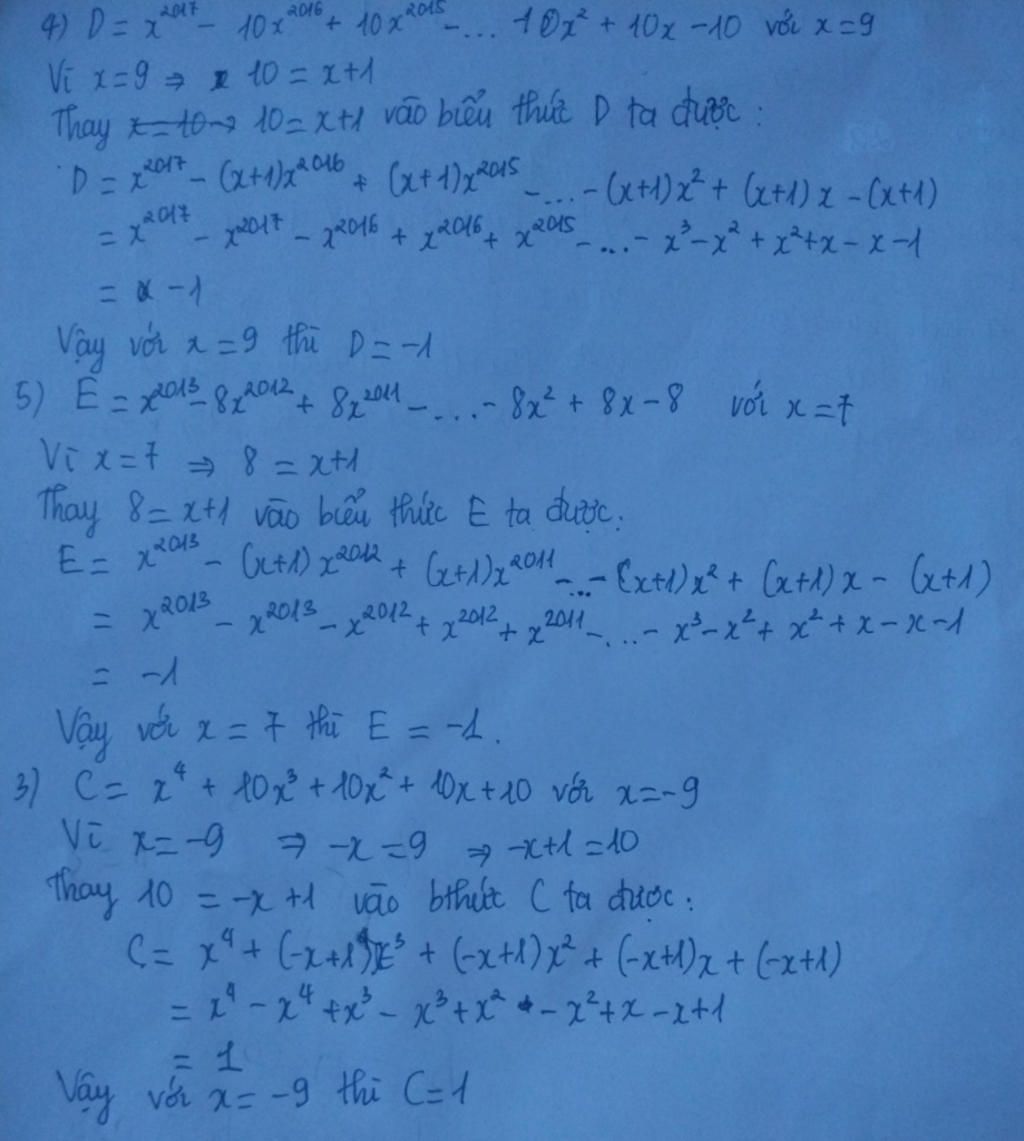 4) D = x²⁰¹⁷ - 10x²⁰¹⁶ + 10x²⁰¹⁵ - ... - 10x² + 10x - 10 với x = 9
Vì x = 9 ⇒ 10 = x+1
Thay x = 10 → 10 = x+1 vào biểu thức D ta được :
D = x²⁰¹⁷ - (x+1)x²⁰¹⁶ + (x+1)x²⁰¹⁵ - ... - (x+1)x² + (x+1)x - (x+1)
= x²⁰¹⁷ - x²⁰¹⁷ - x²⁰¹⁶ + x²⁰¹⁶ + x²⁰¹⁵ - ... - x³ - x² + x² + x - x - 1
= -1
Vậy với x = 9 thì D = -1
5) E = x²⁰¹³ - 8x²⁰¹² + 8x²⁰¹¹ - ... - 8x² + 8x - 8 với x = 7
Vì x = 7 ⇒ 8 = x+1
Thay 8 = x+1 vào biểu thức E ta được:
E = x²⁰¹³ - (x+1)x²⁰¹² + (x+1)x²⁰¹¹ - ... - (x+1)x² + (x+1)x - (x+1)
= x²⁰¹³ - x²⁰¹³ - x²⁰¹² + x²⁰¹² + x²⁰¹¹ - ... - x³ - x² + x² + x - x - 1
= -1
Vậy với x = 7 thì E = -1.
3) C = x⁴ + 10x³ + 10x² + 10x + 10 với x = -9
Vì x = -9 ⇒ -x = 9 ⇒ -x+1 = 10
Thay 10 = -x+1 vào bthức C ta được:
C = x⁴ + (-x+1)x³ + (-x+1)x² + (-x+1)x + (-x+1)
= x⁴ - x⁴ + x³ - x³ + x² - x² + x - x + 1
= 1
Vậy với x = -9 thì C = 1